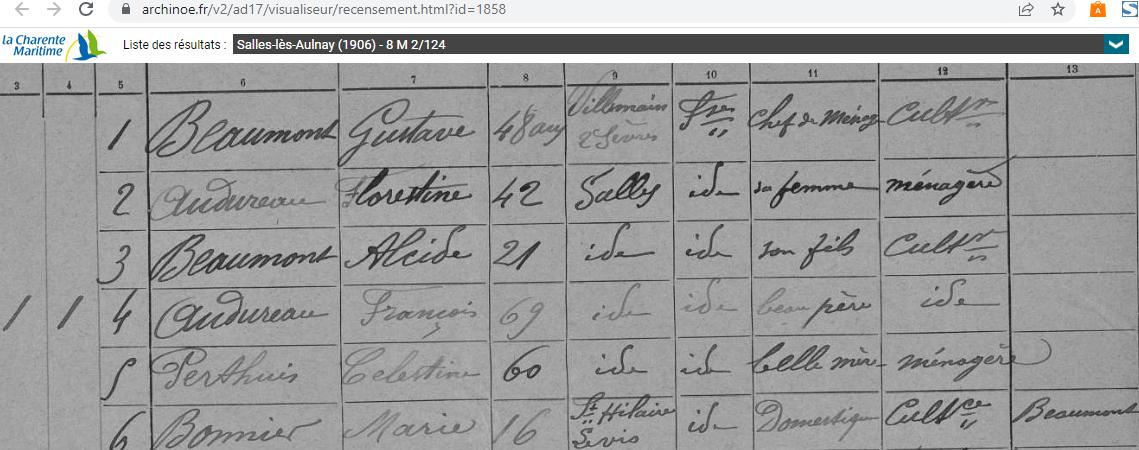 archinoe.fr/v2/ad17/visualiseur/recensement.html?id=1858
la Charente Maritime
Liste des résultats : Salles-lès-Aulnay (1906) - 8 M 2/124
3 4 5 6 7 8 9 10 11 12 13
1 Beaumont Gustave 48 ans Villemain 2 Sèvres Fse " Chef de Ménage Cultr
2 Audureau Florestine 42 Salles ide sa femme ménagère
3 Beaumont Alcide 21 ide ide son fils Cultr
1 1 4 Audureau François 69 ide ide beau père ide
5 Perthuis Celestine 60 ide ide belle mère ménagère
6 Bonnier Marie 16 St Hilaire ide Domestique Cultce Beaumont